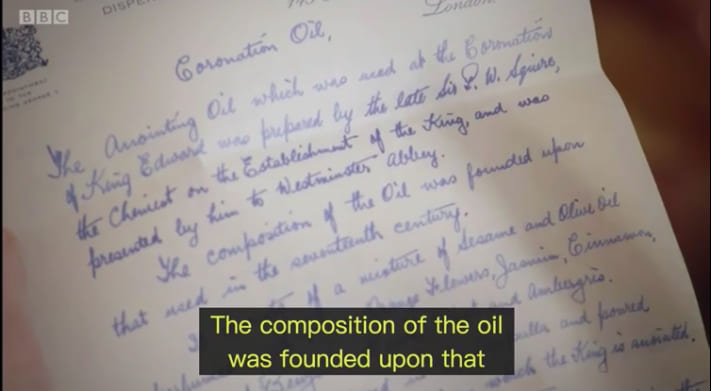 BBC
DISPE
London
Coronation Oil,
The Anointing Oil which was used at the Coronation
of King Edward was prepared by the late Sir P. W. Squire,
the Chemist on the Establishment of the King, and was
presented by him to Westminster Abbey.
The composition of the Oil was founded upon
that used in the seventeenth century.
of a mixture of Sesame and Olive Oil
Orange Flowers, Jasmin, Cinnamon,
and Ambergris.
and poured
which the King is anointed.
The composition of the oil
was founded upon that